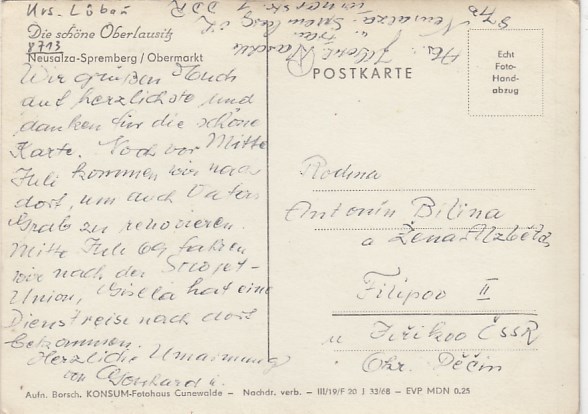 Krs. Löbau
Die schöne Oberlausitz
8713
Neusalza-Spremberg / Obermarkt
Wir grüßen Euch
auf herzlichste und
danken für die schöne
Karte. Noch vor Mitte
Juli kommen wir nach
dort, um auch Vaters
Grab zu renovieren.
Mitte Juli 69 fahren
wir nach der Sowjet-
Union, Gisela hat eine
Dienstreise nach dort
bekommen.
Herzliche Umarmung
von Gerhard u.
Abs.:
u. Frau
Neusalza-Spremberg
DDR
POSTKARTE
Echt
Foto-
Hand-
abzug
Rodina
Antonín Bilina
a Žena Alzběta
Filipov II
u Jiříkov ČSSR
Okr. Děčín
Aufn. Borsch. KONSUM-Fotohaus Cunewalde - Nachdr. verb. - III/19/F 20 J 33/68 - EVP MDN 0.25